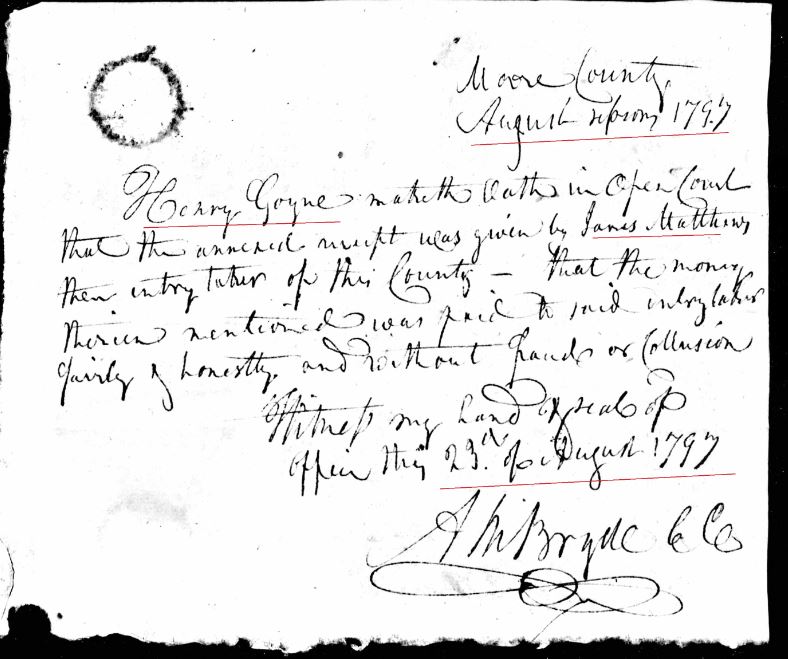 Moore County,
August sessions 1797
Henry Goyne maketh Oath in Open Court
that the annexed receipt was given by James Matthews
then entry taker of this County — that the money
therein mentioned was paid to said entry taker
fairly & honestly, and without fraud or Collusion
Witness my hand & seal of
office this 23.rd of August 1797
A McBryde C C